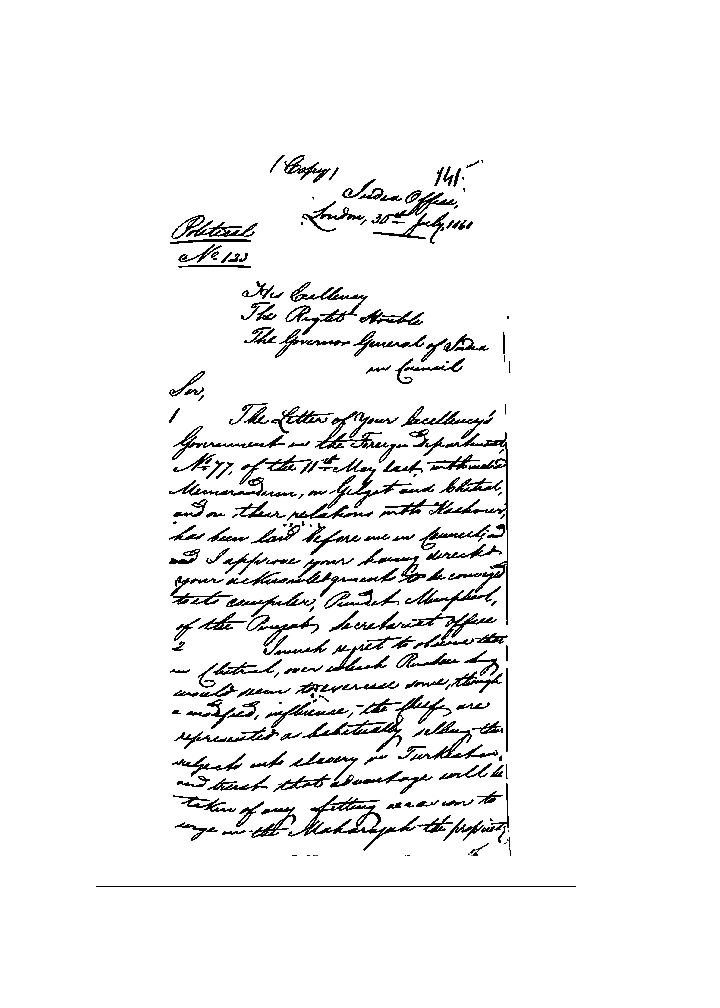 (Copy)
141.
India Office,
London, 30th July, 1868
Political
No. 133
His Excellency
The Right Honble
The Governor General of India
in Council
Sir,
1 The Letter of Your Excellency's
Government in the Foreign Department,
No. 77, of the 11th May last, with
Memorandum, on Gilgit and Chitral,
and on their relations with Kashmir,
has been laid before me in Council; and
and I approve your having directed
your acknowledgments to be conveyed
to its compiler, Pundit Munphool,
of the Punjab Secretariat Office
2 I much regret to observe that
in Chitral, over which Runbeer Sing
would seem to exercise some, though
a modified, influence, the chiefs are
represented as habitually selling their
subjects into slavery in Turkistan,
and trust that advantage will be
taken of any fitting occasion to
urge on the Maharajah the propriety
of